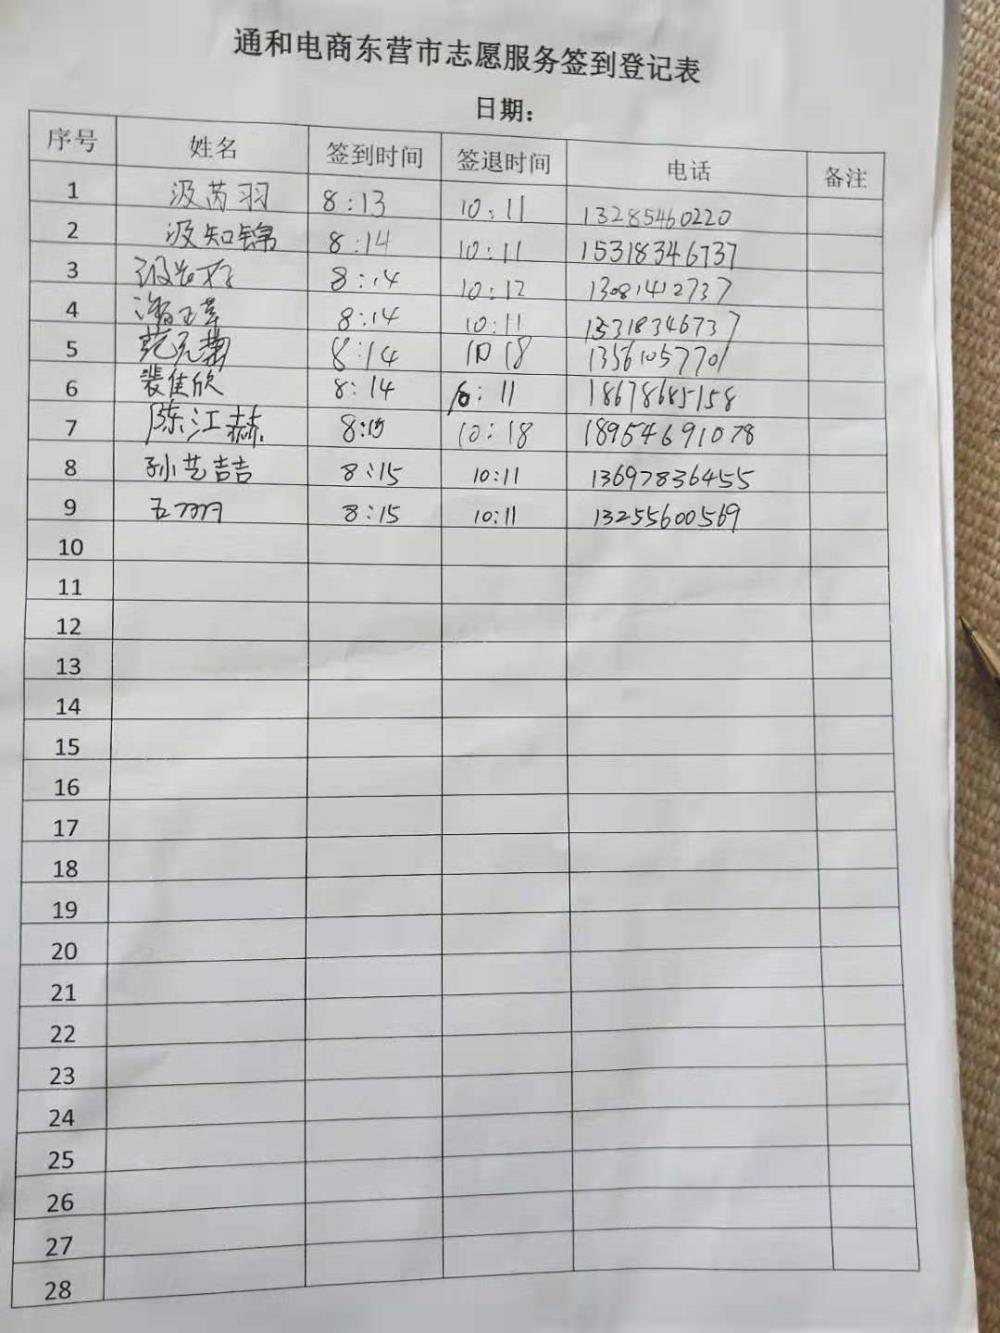 通和电商东营市志愿服务签到登记表
日期：
序号 姓名 签到时间 签退时间 电话 备注
1 汲芮羽 8:13 10:11 13285460220
2 汲知锦 8:14 10:11 15318346737
3 8:14 10:12 13081412737
4 8:14 10:11 15318346737
5 8:14 10 18 13561057701
6 裴佳欣 8:14 10:11 18678685158
7 陈江赫 8:15 10:18 18954691078
8 孙艺吉吉 8:15 10:11 13697836455
9 8:15 10:11 13255600569
10
11
12
13
14
15
16
17
18
19
20
21
22
23
24
25
26
27
28